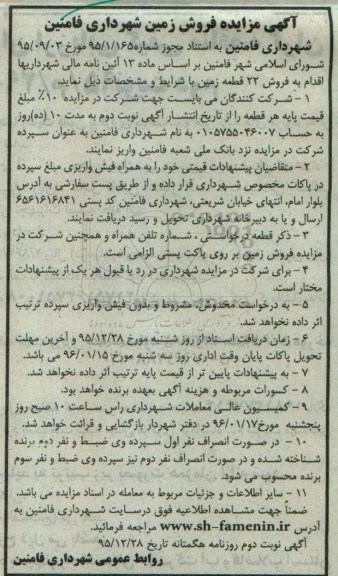 آگهی مزایده فروش زمین شهرداری فامنین
شهرداری فامنین به استناد مجوز شماره ۹۵/۱/۱۶۵ مورخ ۹۵/۰۹/۰۳
شورای اسلامی شهر فامنین بر اساس ماده ۱۳ آئین نامه مالی شهرداریها
اقدام به فروش ۲۲ قطعه زمین با شرایط و مشخصات ذیل نماید.
۱ - شرکت کنندگان می بایست جهت شرکت در مزایده ۱۰٪ مبلغ
قیمت پایه هر قطعه را از تاریخ انتشار آگهی نوبت دوم به مدت ۱۰ (ده)روز
به حساب ۰۱۰۵۷۵۵۰۴۶۰۰۷ به نام شهرداری فامنین به عنوان سپرده
شرکت در مزایده نزد بانک ملی شعبه فامنین واریز نمایند.
۲ - متقاضیان پیشنهادات قیمتی خود را به همراه فیش واریزی مبلغ سپرده
در پاکات مخصوص شهرداری قرار داده و از طریق پست سفارشی به آدرس
بلوار امام، انتهای خیابان شریعتی، شهرداری فامنین کد پستی ۶۵۶۱۶۱۶۸۴۱
ارسال و یا به دبیرخانه شهرداری تحویل و رسید دریافت نمایند.
۳ - ذکر قطعه درخواستی ، شماره تلفن همراه و همچنین شرکت در
مزایده فروش زمین بر روی پاکت پستی الزامی است.
۴ - برای شرکت در مزایده شهرداری در رد یا قبول هر یک از پیشنهادات
مختار است.
۵ - به درخواست مخدوش، مشروط و بدون فیش واریزی سپرده ترتیب
اثر داده نخواهد شد.
۶ - زمان دریافت اسناد از روز شنبه مورخ ۹۵/۱۲/۲۸ و آخرین مهلت
تحویل پاکات پایان وقت اداری روز سه شنبه مورخ ۹۶/۰۱/۱۵ می باشد.
۷ - به پیشنهادات پایین تر از قیمت پایه ترتیب اثر داده نخواهد شد.
۸ - کسورات مربوطه و هزینه آگهی بعهده برنده خواهد بود.
۹ - کمیسیون عالی معاملات شهرداری راس ساعت ۱۰ صبح روز
پنجشنبه مورخ ۹۶/۰۱/۱۷ در دفتر شهردار بازگشایی و قرائت خواهد شد.
۱۰ - در صورت انصراف نفر اول سپرده وی ضبط و نفر دوم برنده
شناخته شده و در صورت انصراف نفر دوم نیز سپرده وی ضبط و نفر سوم
برنده محسوب می شود.
۱۱ - سایر اطلاعات و جزئیات مربوط به معامله در اسناد مزایده می باشد.
ضمناً جهت مشاهده اطلاعیه فوق درسایت شهرداری فامنین به
آدرس www.sh-famenin.ir مراجعه فرمائید.
آگهی نوبت دوم روزنامه هگمتانه تاریخ ۹۵/۱۲/۲۸
روابط عمومی شهرداری فامنین